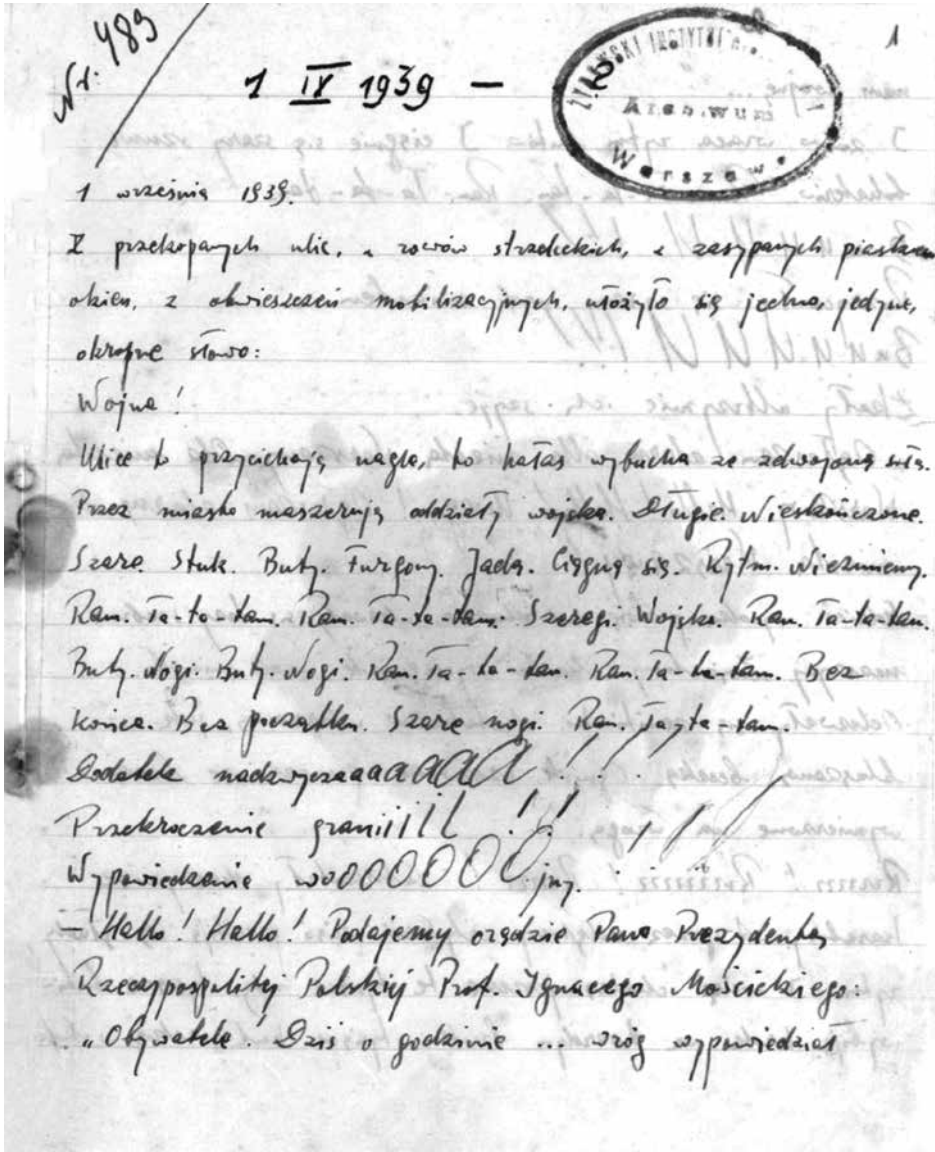 Nr. 489
1 IX 1939 —
1
ŻYDOWSKI INSTYTUT
Archiwum
Warszawa
1 września 1939.
Z przekopanych ulic, z rowów strzeleckich, z zasypanych piaskiem
okien, z obwieszczeń mobilizacyjnych, ułożyło się jedno, jedyne,
okropne słowo:
Wojna!
Ulice to przycichają nagle, to hałas wybucha ze zdwojoną siłą.
Przez miasto maszerują oddziały wojska. Długie. Nieskończone.
Szare. Stuk. Buty. Furgony. Jadą. Ciągną się. Rytm. Niezmienny.
Ram. Ta-ta-tam. Ram. Ta-ta-tam. Szeregi. Wojsko. Ram. Ta-ta-tam.
Buty. Nogi. Buty. Nogi. Ram. Ta-ta-tam. Ram. Ta-ta-tam. Bez
końca. Bez początku. Szare nogi. Ram. Ta-ta-tam.
Dodatek nadzwyczaaaaaaa!!!
Przekroczenie graniiiii!!!!!
Wypowiedzenie wooooooojny.
– Hallo! Hallo! Podajemy orędzie Pana Prezydenta
Rzeczypospolitej Polskiej Prof. Ignacego Mościckiego:
„Obywatele! Dziś o godzinie ... wróg wypowiedział